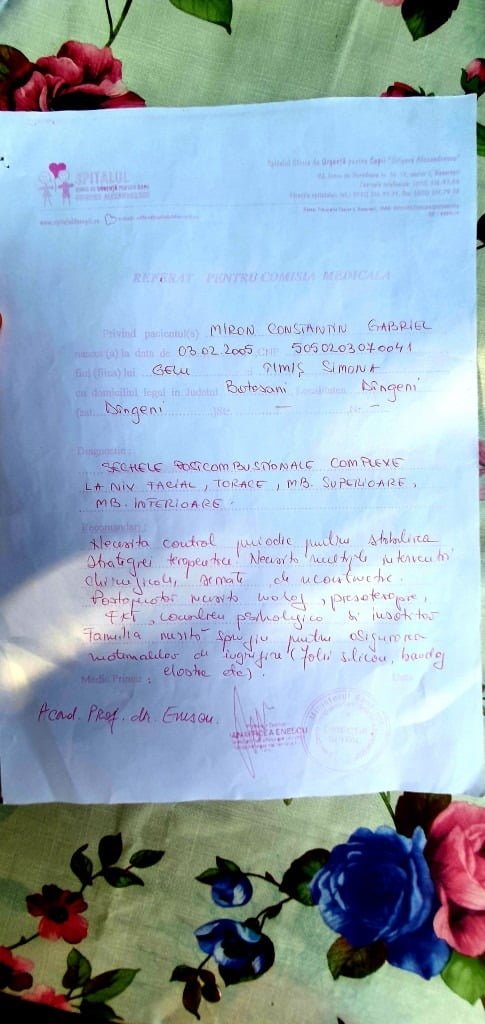 SPITALUL
CLINIC DE URGENȚĂ PENTRU COPII
GRIGORE ALEXANDRESCU
Spitalul Clinic de Urgență pentru Copii "Grigore Alexandrescu"
REFERAT PENTRU COMISIA MEDICALA
Privind pacientul(a) MIRON CONSTANTIN GABRIEL
nascut (a) la data de 03.02.2005 CNP 5050203070041
fiul (fiica) lui GELU TIMIȘ SIMONA
cu domiciliul legal in Judetul Botosani Localitatea Dîngeni
(sat Dîngeni )Str. — Nr. —
Diagnostic:
SECHELE POSTCOMBUSTIONALE COMPLEXE
LA NIV FACIAL, TORACE, MB. SUPERIOARE,
MB. INFERIOARE.
Recomandari:
Necesita control periodic pentru stabilirea
strategiei terapeutice. Necesita multiple interventii
chirurgicale, seriate de
Postoperator necesita masaj, presoterapie,
FKT, consiliere psihologica si insotitor
Familia necesita sprijin pentru asigurarea
materialelor de ingrijire (folii silicon, bandaj
elastic etc).
Medic Primar: Data
Acad. Prof. dr. Enescu.